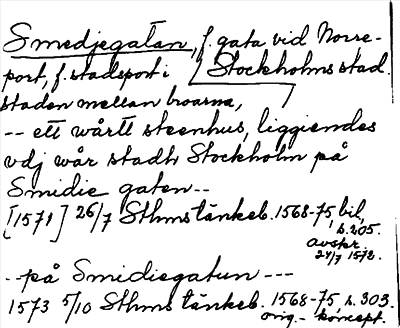 Smedjegatan, f. gata vid Norre-
port, f. stadsport i Stockholms stad.
staden mellan broarna,
-- ett wårtt steenhus, liggiendes
vdj wår stadh Stockholm på
Smidie gaten--
[1571] 26/7 Sthms tänkeb. 1568-75, bil,
s. 205.
avskr.
24/7 1572.
--på Smidiegatun ---
1573 5/10 Sthms tänkeb. 1568-75 s. 303.
orig.- koncept.